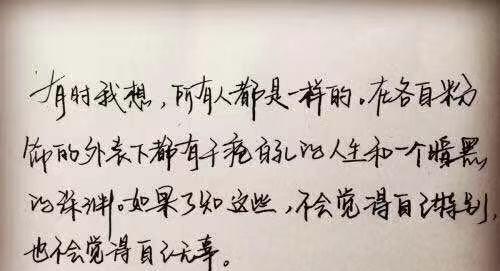 有时我想，所有人都是一样的。在各自粉
饰的外表下都有千疮百孔的人生和一个暗黑
的深渊。如果了知这些，不会觉得自己特别，
也不会觉得自己无辜。